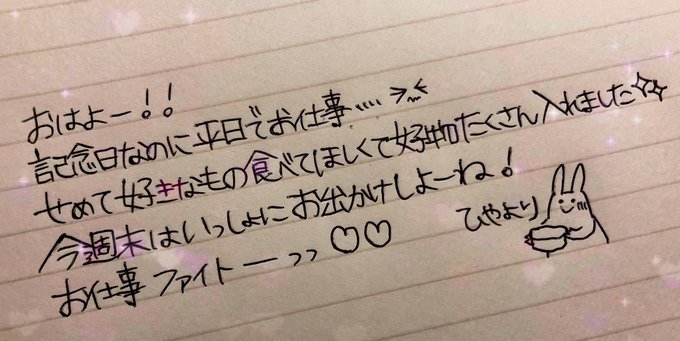 おはよー!!
記念日なのに平日でお仕事…. ><
せめて好きなもの食べてほしくて好物たくさん入れました☆☆
今週末はいっしょにお出かけしよーね!
お仕事ファイトーっっ♡♡
ひやより